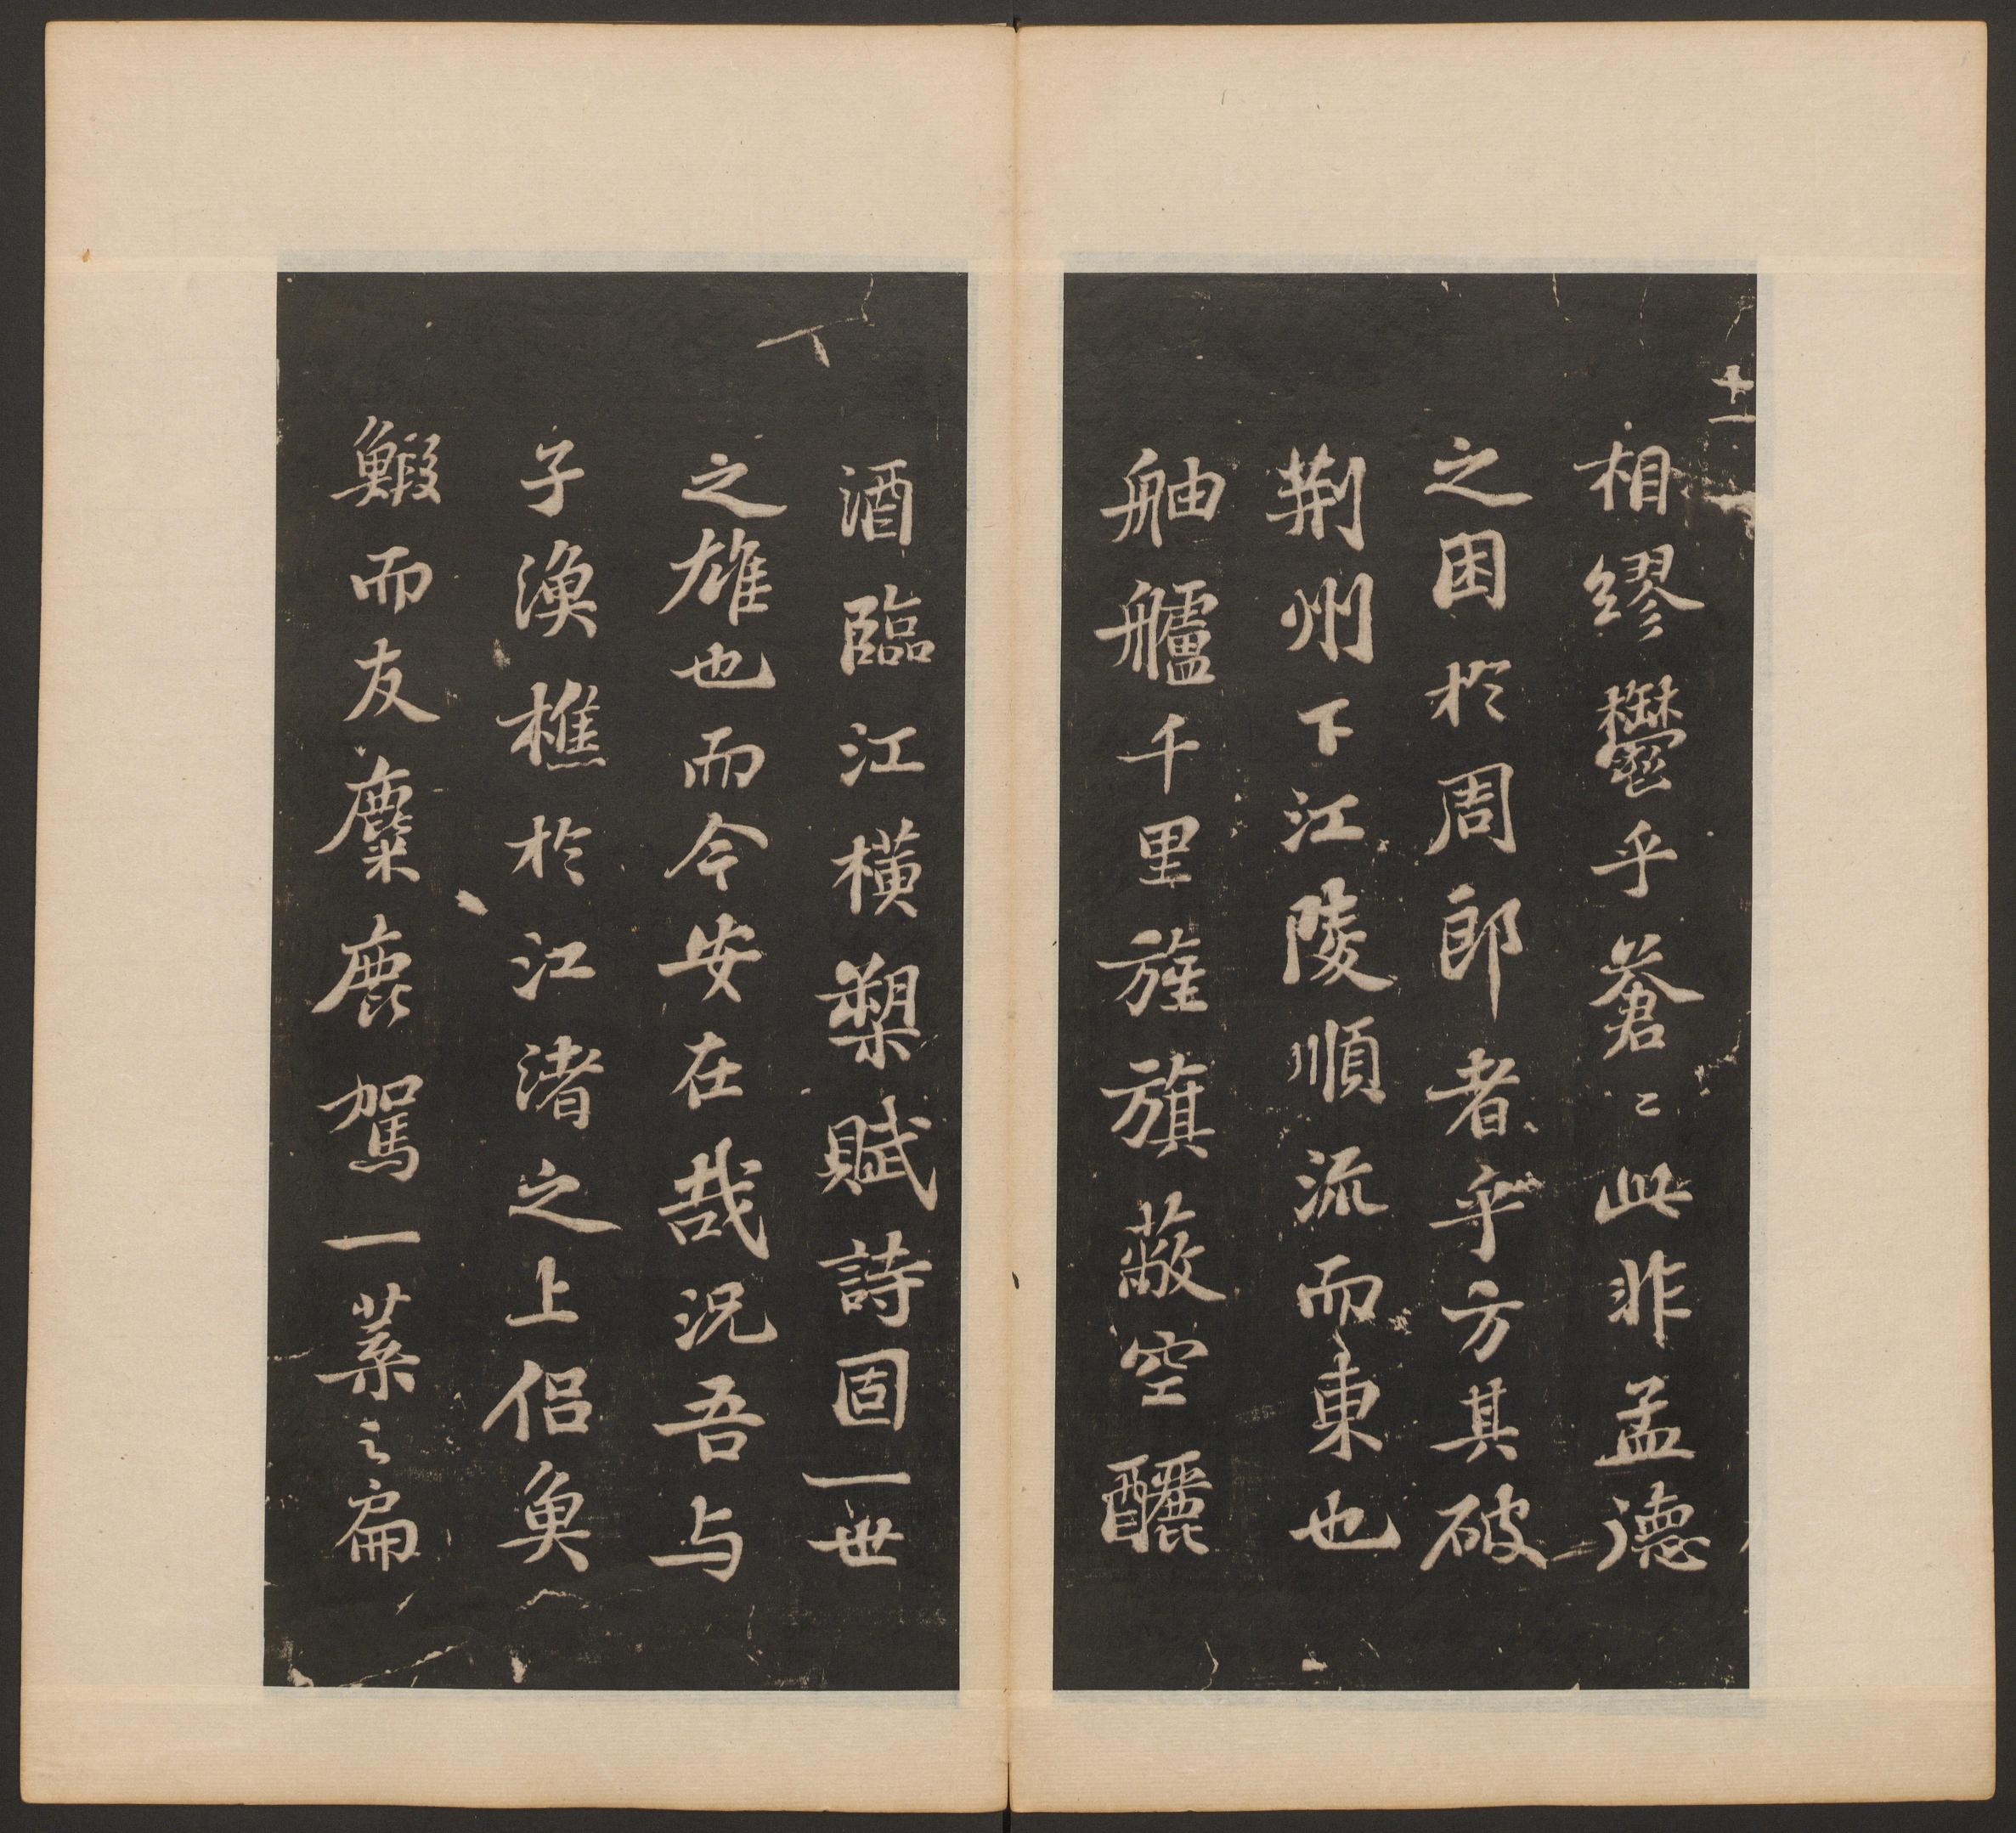 十二
相繆欝乎蒼〻此非孟德
之困於周郎者乎方其破
荆州下江陵順流而東也
舳艫千里旌旗蔽空釃
酒臨江橫槊賦詩固一世
之雄也而今安在哉況吾与
子渙樵於江渚之上侶魚
鰕而友麋鹿駕一葉之扁